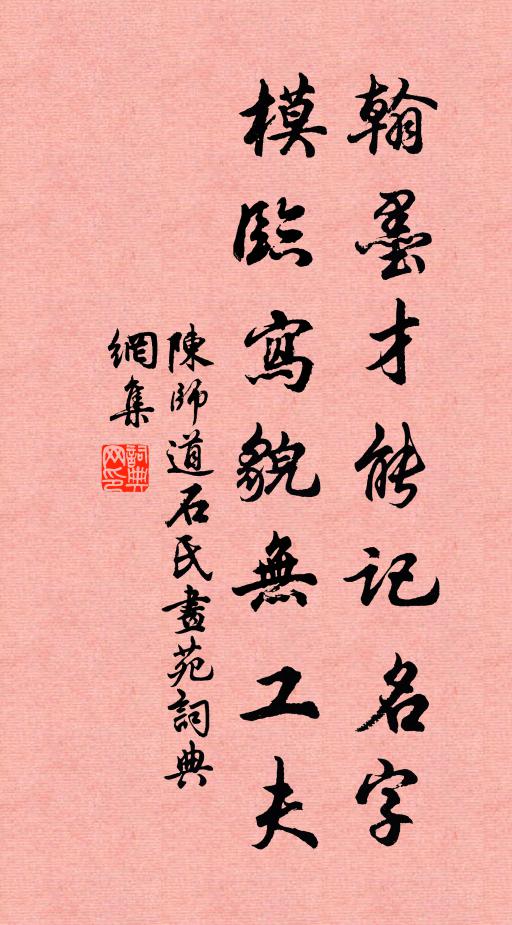 翰墨才能記名字
模臨寫貌無工夫
陳師道石氏畫苑詞典
網集
詞典
网印